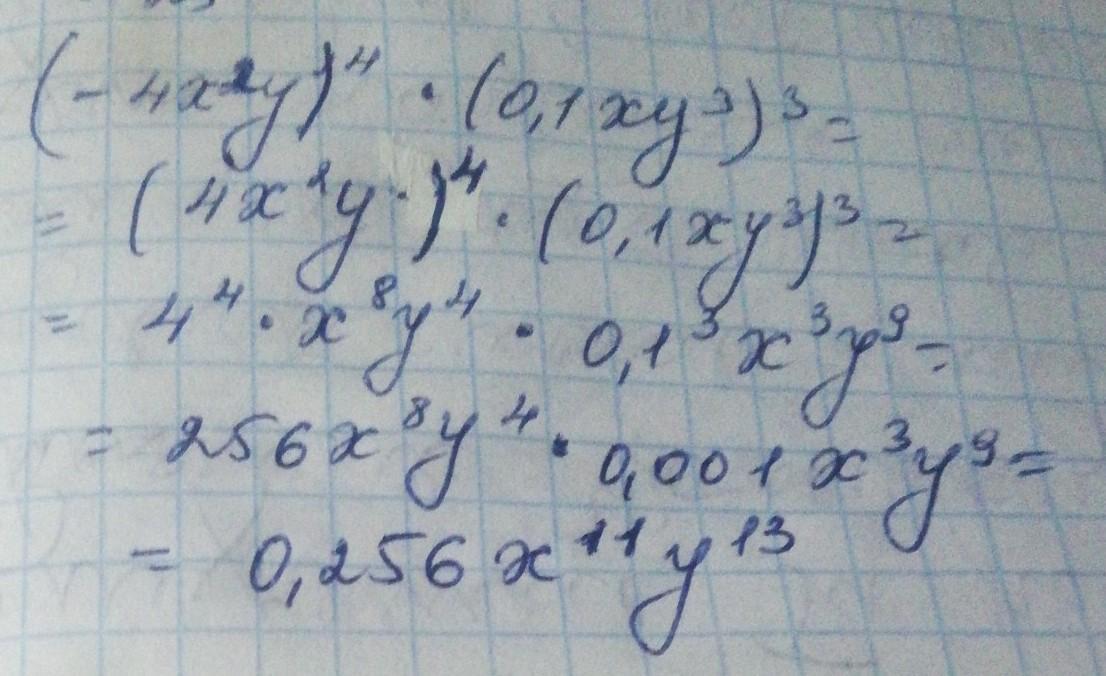 (-4x²y)⁴ · (0,1xy³)³ =
= (4x²y·)⁴ · (0,1xy³)³ =
= 4⁴ · x⁸y⁴ · 0,1³x³y⁹ =
= 256x⁸y⁴ · 0,001x³y⁹ =
= 0,256x¹¹y¹³